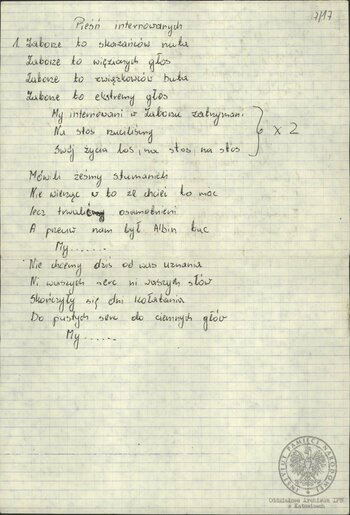 7/17
Pieśń internowanych
1. Zaborze to skazańców nuta
Zaborze to więzionych głos
Zaborze to związkowców buta
Zaborze to ekstremy głos
My internowani w Zaborzu zatrzymani
Na stos rzuciliśmy
Swój życia los, na stos, na stos
} x 2
Mówili żeśmy stumanieni
Nie wierząc w to że chcieć to móc
lecz trwaliśmy osamotnieni
A przeciw nam był Albin
My......
Nie chcemy dziś od was uznania
Ni waszych serc ni waszych słów
Skończyły się dni kołatania
Do pustych serc do ciemnych głów
My......
INSTYTUT PAMIĘCI NARODOWEJ
Oddziałowe Archiwum IPN
w Katowicach